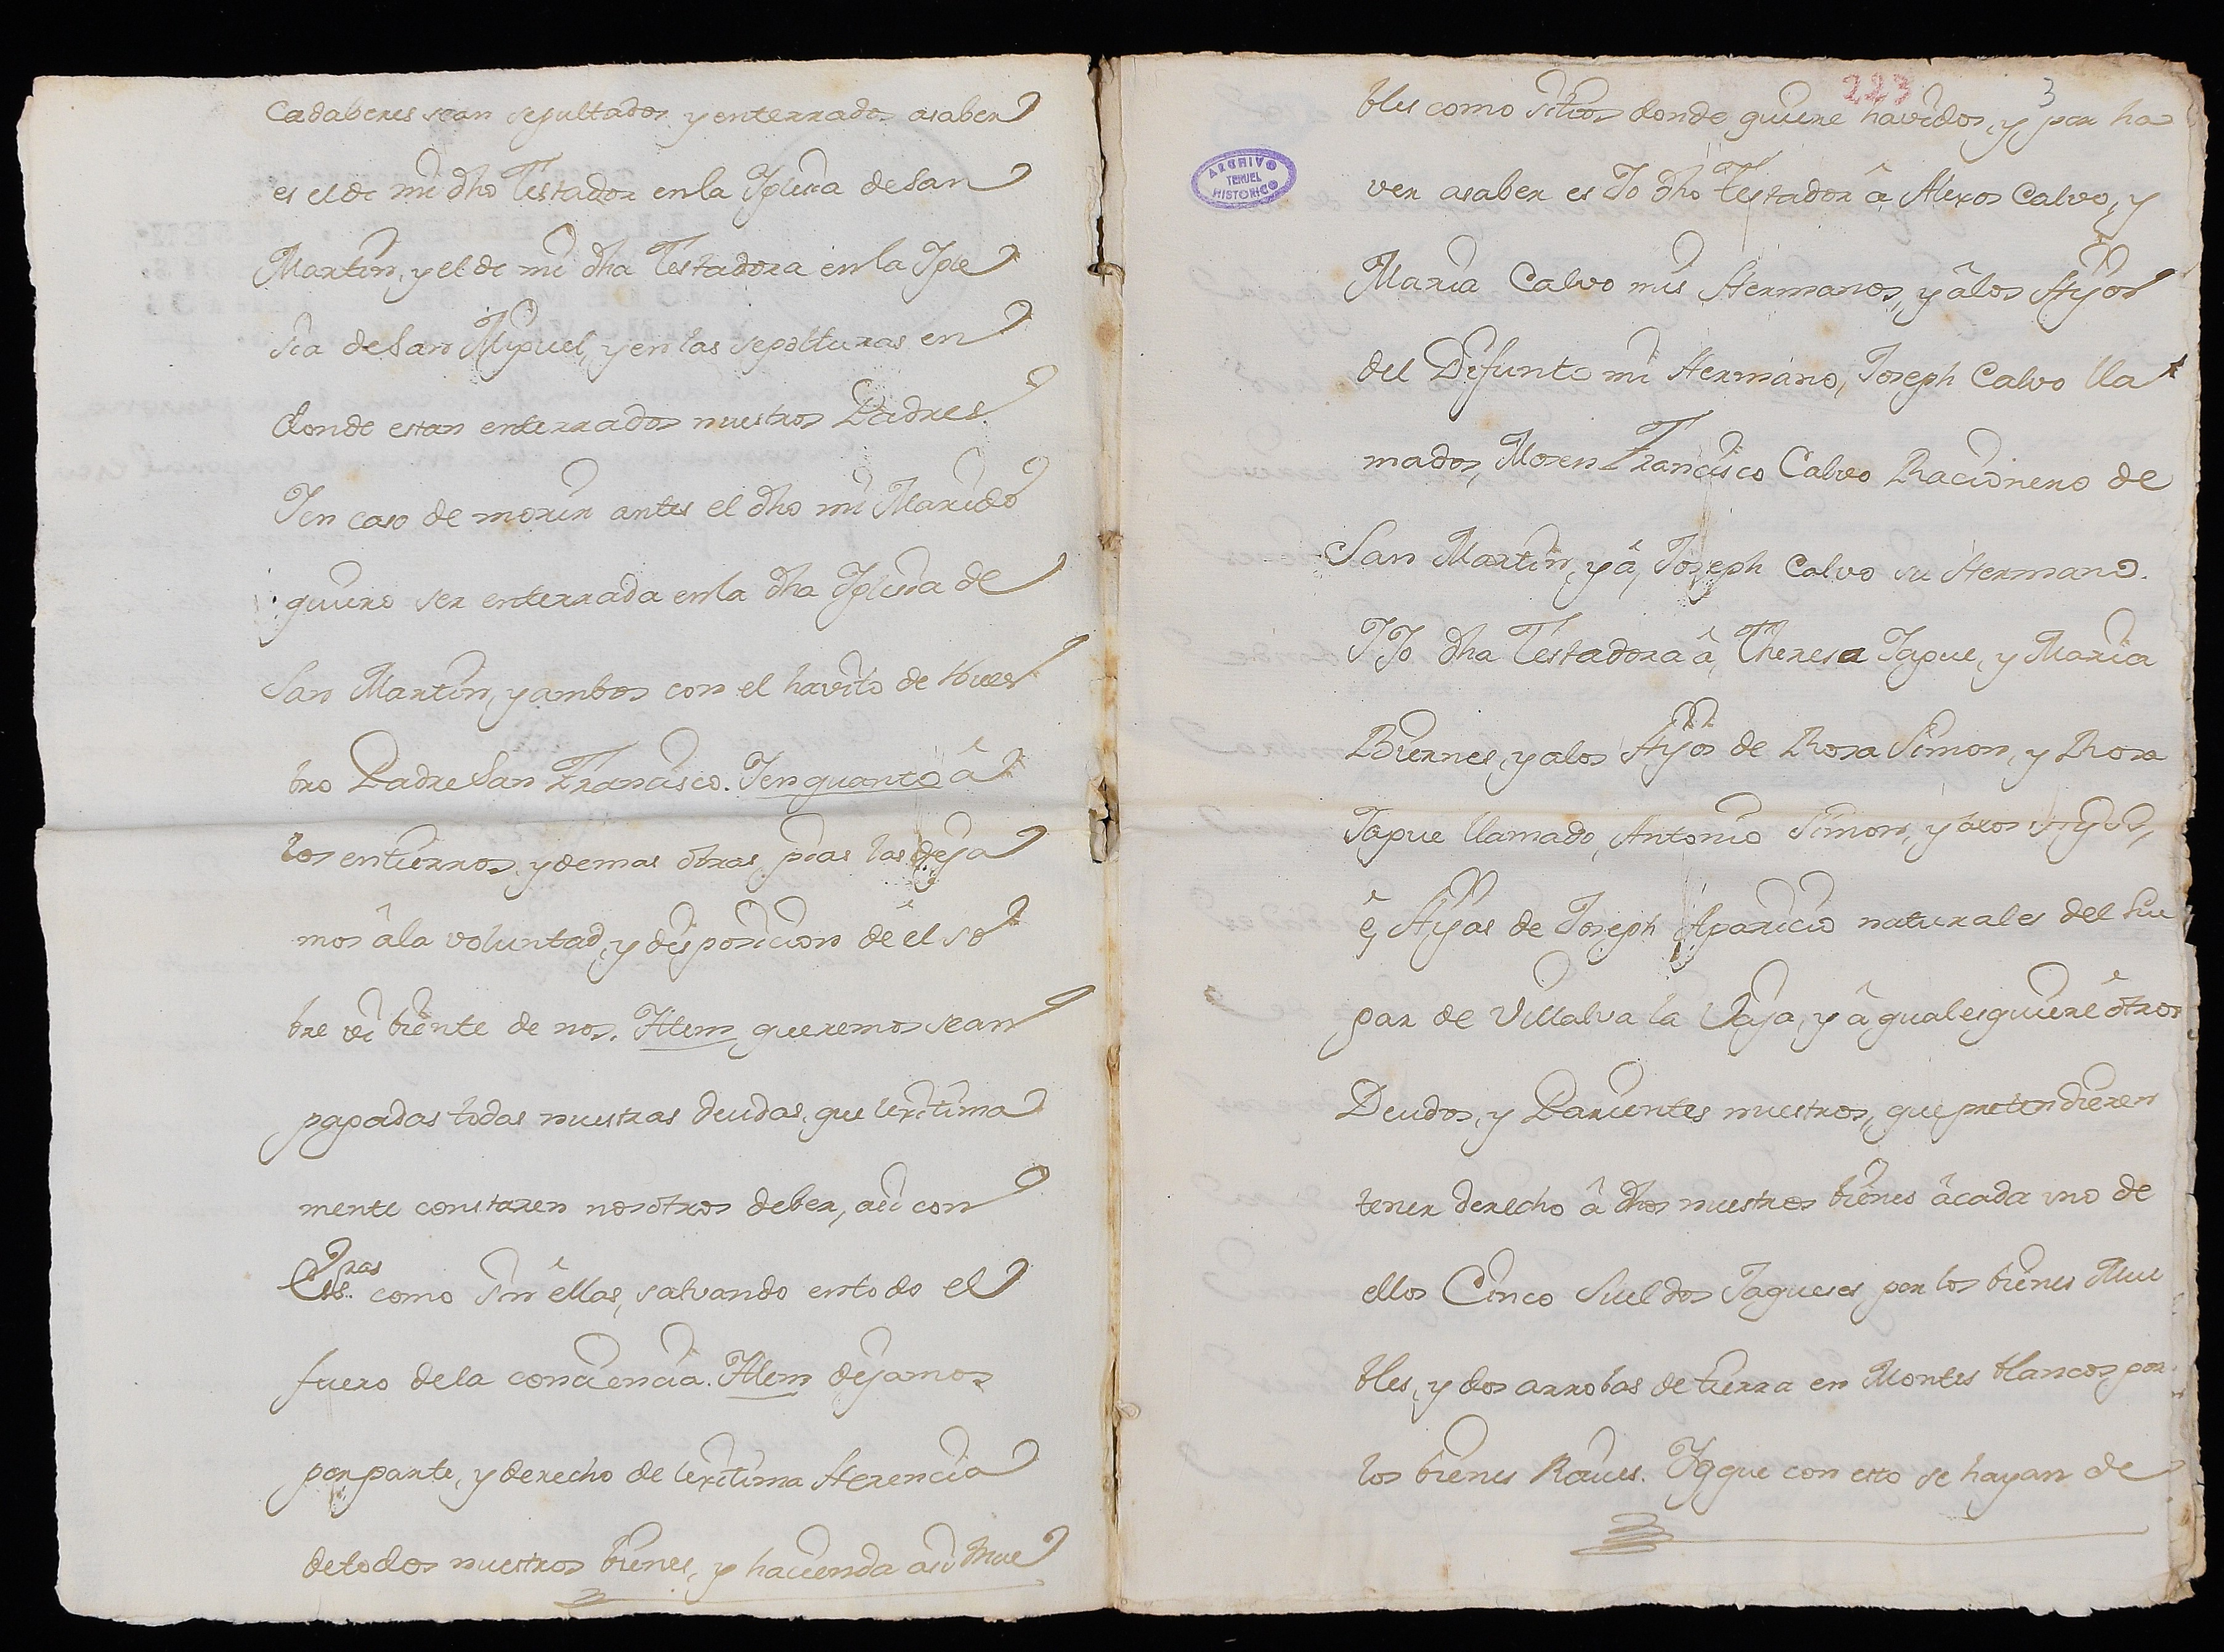 Cadaberes sean sepultados y enterrados asaber
es el de mi dho Testador en la Iglesia de San
Martin, y el de mi dha Testadora en la Igle
sia de San Miguel, y en las sepolturas en
donde estan enterrados nuestros Padres.
Y en caso de morir antes el dho mi Marido
quiero ser enterrada en la dha Iglesia de
San Martin, y ambos con el havito de Nues
tro Padre San Francisco. Y en quanto â
los entierros, y demas obras pias las deja
mos â la voluntad, y disposicion de êl so
bre vi biente de nos. Ittem queremos sean
pagadas todas nuestras deudas, que lexitima
mente constaren nosotros deber, asi con
Essras como sin êllas, salvando en todo el
fuero de la conciencia. Ittem dejamos
por parte, y derecho de lexitima Herencia
de todos nuestros bienes, y hacienda asi Mue
223 3
bles como sitios donde quiere havidos, y por ha
ver asaber es Yo dho Testador â Alexos Calvo, y
Maria Calvo mis Hermanos, y âlos Hijos
del Difunto mi Hermano, Joseph Calvo lla
mados, Mosen Francisco Calvo Racionero de
San Martin, y â, Joseph Calvo su Hermano.
Y Yo dha Testadora â, Theresa Jague, y Maria
Biernes, y alos Hijos de Rosa Simon, y Rosa
Jague llamado, Antonio Simon, y âlos Hijos,
ê, Hijas de Joseph Aparicio naturales del Lu
gar de Villalva la Baja, y â qualesquiere ôtros
Deudos, y Parientes nuestros, que pretendieren
tener derecho â dhos nuestros bienes âcada uno de
ellos Cinco Sueldos Jaqueses por los bienes Mue
bles, y dos arrobas de tierra en Montes blancos por
los bienes Raices. Y que con esto se hayan de
ARCHIVO
TERUEL
HISTORICO